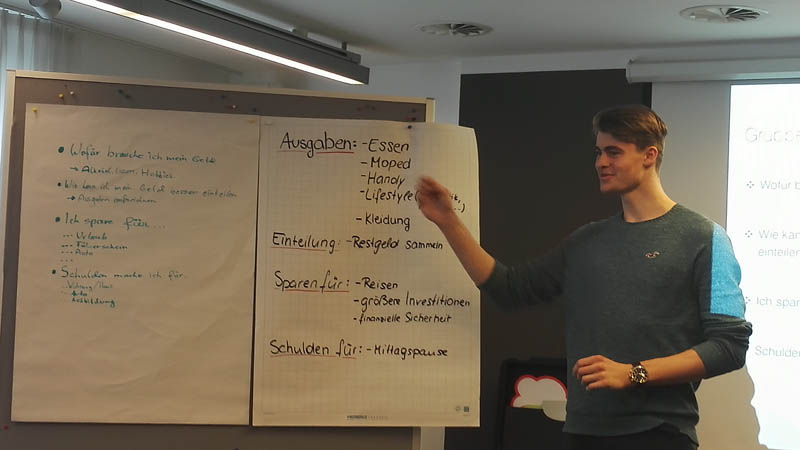 • Wofür brauche ich mein Geld
→ Alkohol, Essen, Hobbies
• Wie kann ich mein Geld besser einteilen
→ Ausgaben aufschreiben
• Ich spare für...
--- Urlaub
--- Führerschein
--- Auto
...
• Schulden mache ich für
... Wohnung/Haus
... Auto
Ausbildung
Ausgaben: -Essen
-Moped
-Handy
-Lifestyle
-Kleidung
Einteilung: -Restgeld sammeln
Sparen für: -Reisen
-größere Investitionen
-finanzielle Sicherheit
Schulden für: -Mittagspause
Gruppe
Wofür b
Wie kan
einteilen
Ich spar
Schulden